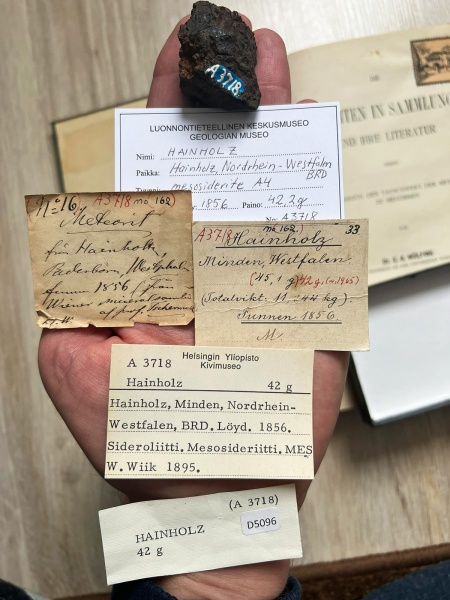 A3718
LUONNONTIETEELLINEN KESKUSMUSEO
GEOLOGIAN MUSEO
Nimi: HAINHOLZ
Paikka: Hainholz, Nordrhein-Westfalen
BRD
mesosiderite A4
1856 Paino: 42,2g
No A3718
No 16, A3718 no 162)
Meteorit
från Hainholz,
Paderborn, Westphalen
funnen 1856 (från
Wiener
af prof. Tschermak
A3718 no 162.) 33
Hainholz
Minden, Westfalen
(45,1 g) 42 g. (m. 1965)
(Totalvikt 11.244 kg)
Funnen 1856.
M.
Helsingin Yliopisto
A 3718 Kivimuseo
Hainholz 42 g
Hainholz, Minden, Nordrhein-
Westfalen, BRD. Löyd. 1856.
Sideroliitti. Mesosideriitti. MES
W. Wiik 1895.
(A 3718)
HAINHOLZ D5096
42 g
EN IN SAMMLUNG
UND IHRE LITERATUR